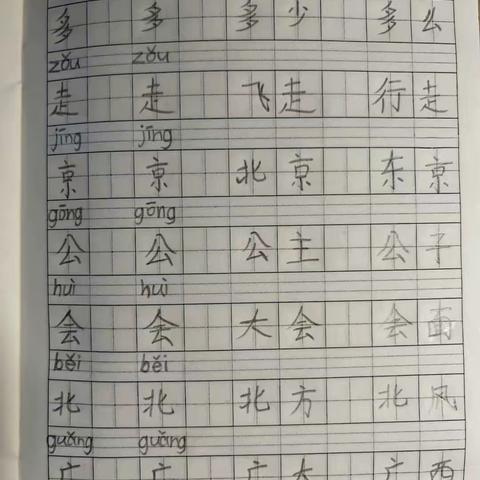 多 多 多少 多么
zǒu zǒu
走 走 飞走 行走
jīng jīng
京 京 北京 东京
gōng gōng
公 公 公主 公子
huì huì
会 会 大会 会面
běi běi
北 北 北方 北风
guǎng guǎng
广 广 广大 广西